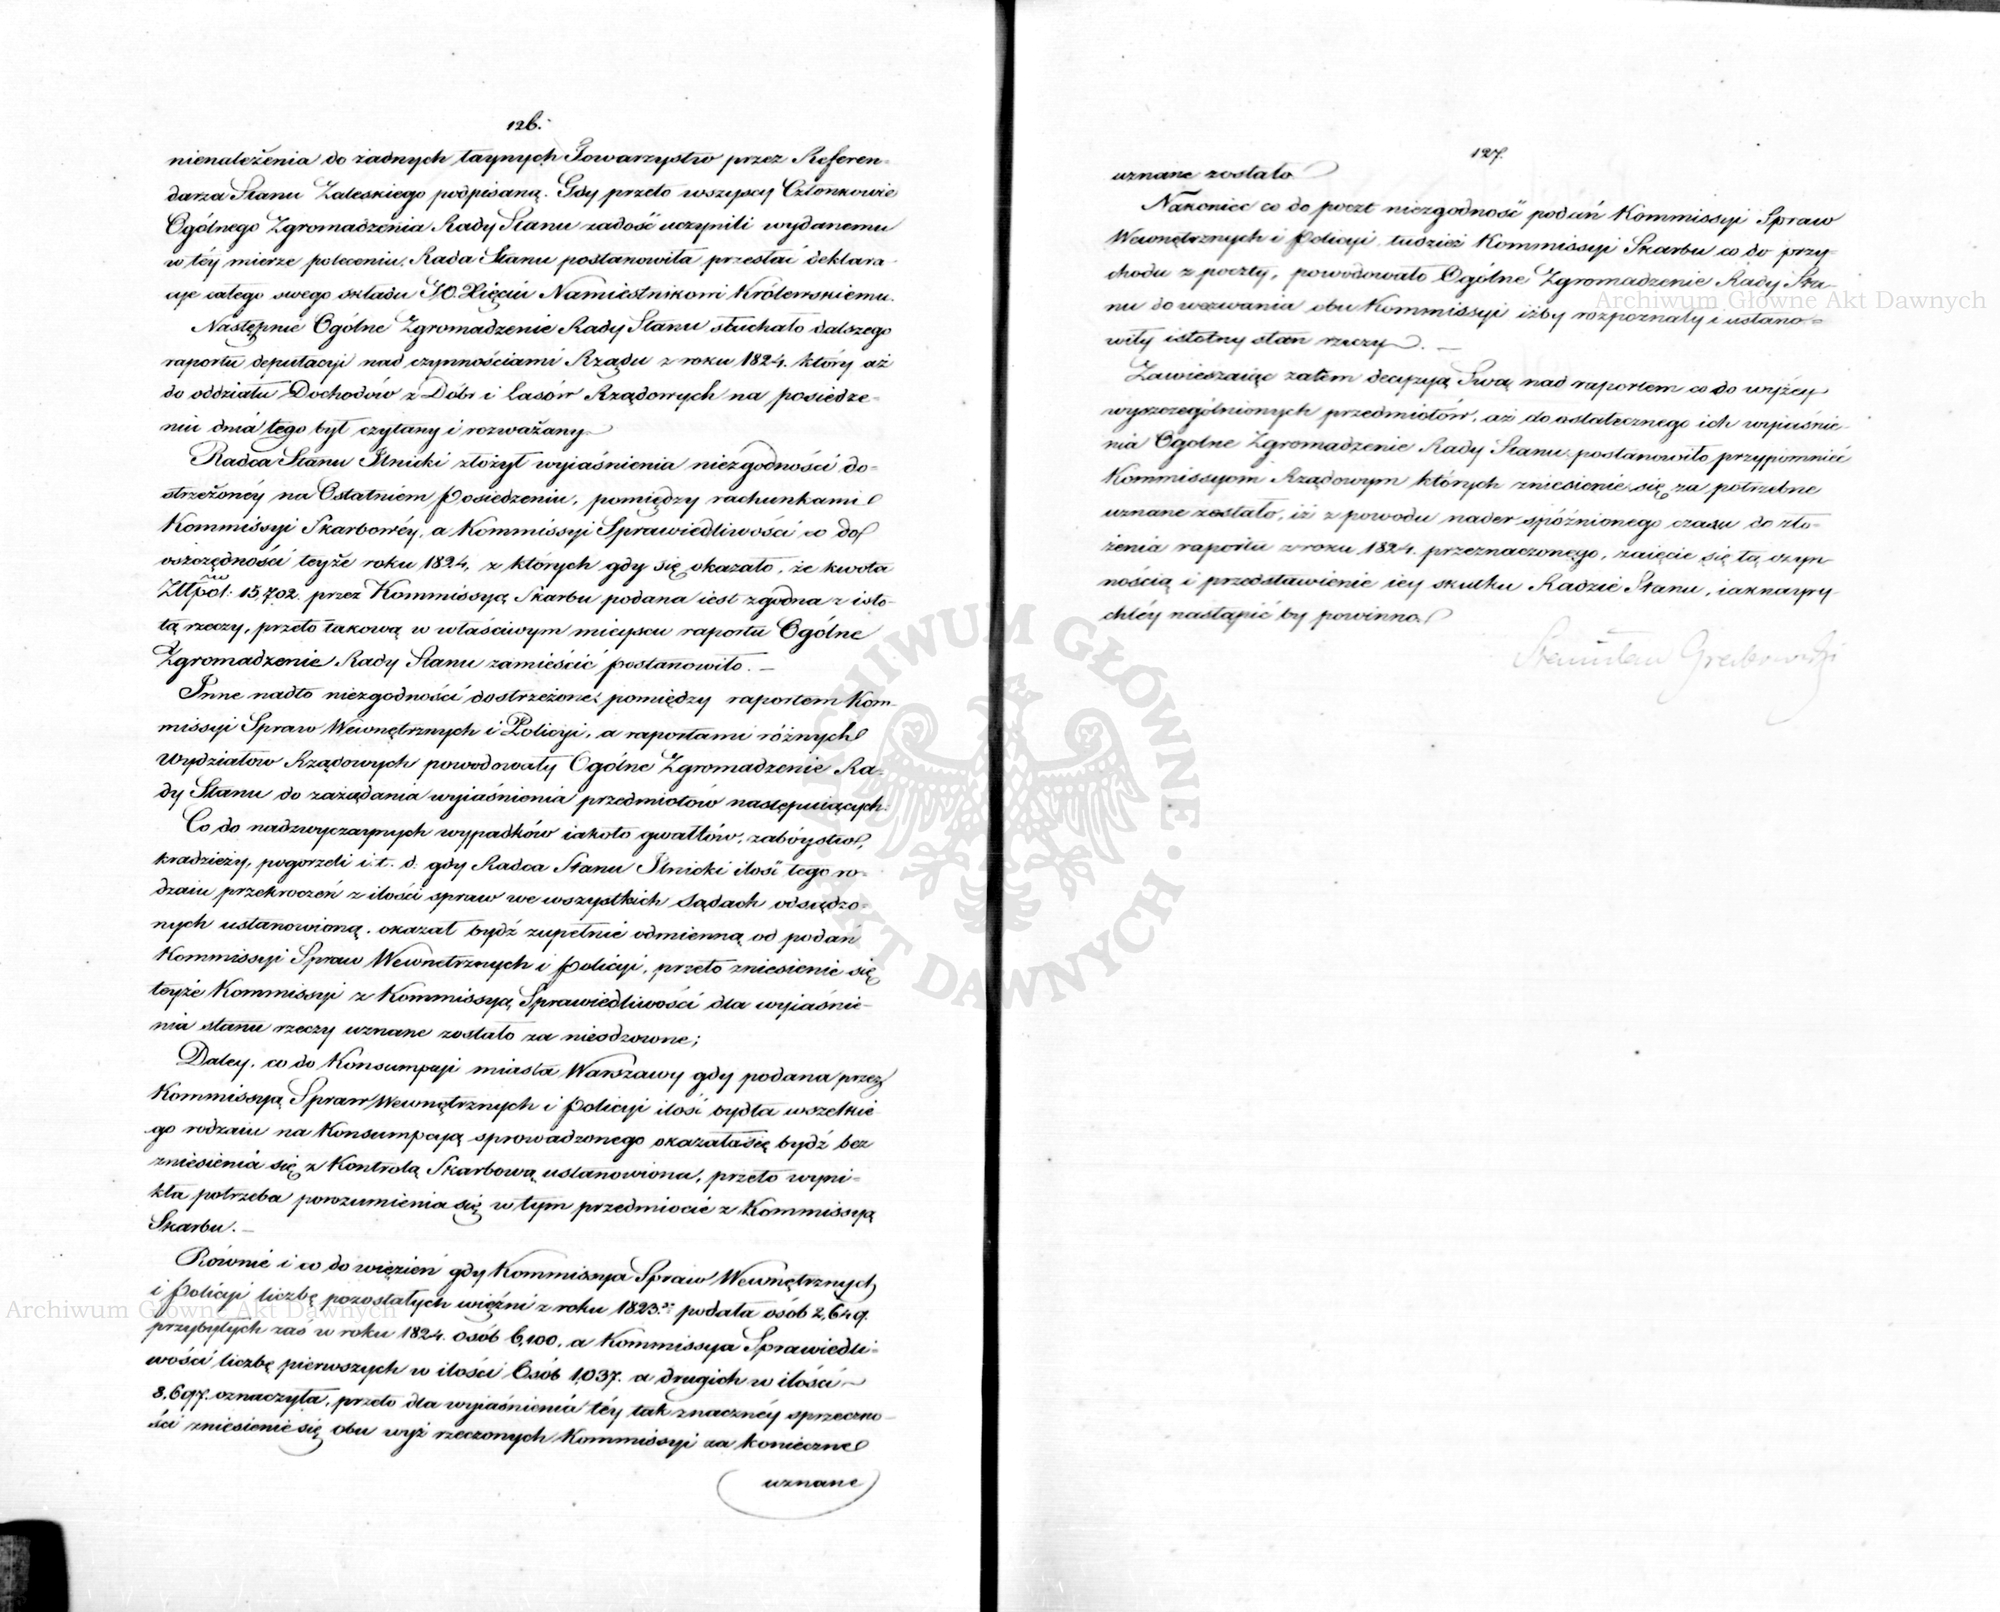 126.
nienależenia do żadnych taynych Towarzystw przez Referen-
darza Stanu Zaleskiego podpisaną. Gdy przeto wszyscy Członkowie
Ogólnego Zgromadzenia Rady Stanu zadość uczynili wydanemu
w téy mierze poleceniu, Rada Stanu postanowiła przesłać deklara-
cye całego swego składu JO. Xięciu Namiestnikowi Królewskiemu.
Następnie Ogólne Zgromadzenie Rady Stanu słuchało dalszego
raportu deputacyi nad czynnościami Rządu z roku 1824. który aż
do oddziału Dochodów z Dóbr i lasów Rządowych na posiedze-
niu dnia tego był czytany i rozważany.
Radca Stanu Ilnicki złożył wyjaśnienia niezgodności do-
strzeżonéy na Ostatniem posiedzeniu, pomiędzy rachunkami
Kommissyi Skarbowéy, a Kommissyi Sprawiedliwości co do
oszczędności teyże roku 1824, z których gdy się okazało, że kwota
Złtpol: 15,702. przez Kommissyą Skarbu podana iest zgodna z isto-
tą rzeczy, przeto takową w właściwym mieyscu raportu Ogólne
Zgromadzenie Rady Stanu zamieścić postanowiło. —
Inne nadto niezgodności dostrzeżone pomiędzy raportem Kom-
missyi Spraw Wewnętrznych i Policyi, a raportami różnych
Wydziałów Rządowych powodowały Ogólne Zgromadzenie Ra-
dy Stanu do zażądania wyjaśnienia przedmiotów następuiących:
Co do nadzwyczaynych wypadków iakoto gwałtów, zabóystw,
kradzieży, pogorzeli i.t.d. gdy Radca Stanu Ilnicki ilość tego ro-
dzaiu przekroczeń z ilości spraw we wszystkich Sądach odsądzo-
nych ustanowioną, okazał bydź zupełnie odmienną od podań
Kommissyi Spraw Wewnetrznych i policyi, przeto zniesienie się
teyże Kommissyi z Kommissyą Sprawiedliwości dla wyjaśnie-
nia stanu rzeczy uznane zostało za nieodzowne;
Daley, co do Konsumpcyi miasta Warszawy gdy podana przez
Kommissyą Spraw Wewnętrznych i Policyi ilość bydła wszelkie
go rodzaiu na Konsumpcyą sprowadzonego okazała się bydź bez
zniesienia się z Kontrolą Skarbową ustanowiona, przeto wyni-
kła potrzeba porozumienia się w tym przedmiocie z Kommissyą
Skarbu. —
Równie i co do więzień gdy Kommissya Spraw Wewnętrznych
i Policyi liczbę pozostałych więźni z roku 1823. podała osób 2,649.
przybyłych zaś w roku 1824. osób 6,100, a Kommissya Sprawiedli-
wości liczbę pierwszych w ilości Osób 1,037. a drugich w ilości
8,697. oznaczyła, przeto dla wyjaśnienia téy tak znacznéy sprzeczno-
ści zniesienie się obu wyż rzeczonych Kommissyi za konieczne
uznane
127.
uznane zostało
Nakoniec co do poczt niezgodność podań Kommissyi Spraw
Wewnętrznych i policyi, tudzież Kommissyi Skarbu co do przy-
chodu z poczty, powodowało Ogólne Zgromadzenie Rady Sta-
nu do wezwania obu Kommissyi iżby rozpoznały i ustano-
wiły istotny stan rzeczy. —
Zawieszaiąc zatem decyzyą Swą nad raportem co do wyżey
wyszczególnionych przedmiotów, aż do ostatecznego ich wyjaśnie-
nia Ogolne Zgromadzenie Rady Stanu, postanowiło przypomnieć
Kommissyom Rządowym których zniesienie się za potrzebne
uznane zostało, iż z powodu nader spóźnionego czasu do zło-
żenia raportu z roku 1824. przeznaczonego, zaięcie się tą czyn
nością i przedstawienie iey skutku Radzie Stanu, iaknayry-
chléy nastąpić by powinno.
Stanisław Grabowski
Archiwum Główne Akt Dawnych
Archiwum Główne Akt Dawnych
ARCHIWUM GŁÓWNE · AKT DAWNYCH ·